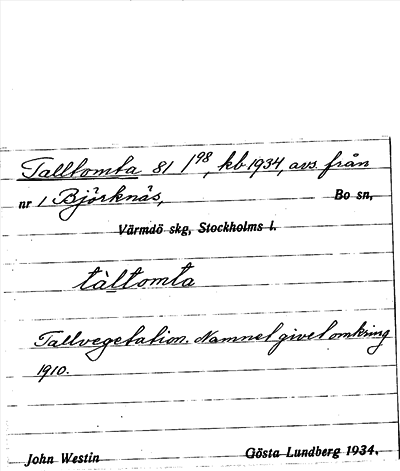 Talltomta 81/98, kb 1934, avs. från
nr 1 Björknäs, Bo sn,
Värmdö skg, Stockholms l.
tàltomta
Tallvegetation. Namnet givet omkring
1910.
John Westin Gösta Lundberg 1934.